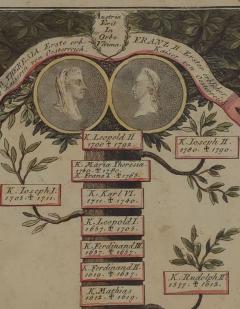 Austria
Erit
In
Orbe
Ultima.
THERESIA Erste erb.
Kaiserin von Oesterreich.
FRANZ II. Erster erbl.
Kaiser von
K. Leopold II.
1790 ✝ 1792.
K. Joseph II.
1780. ✝ 1790.
K. Maria Theresia
1740. ✝ 1780.
K. Franz I. ✝ 1765.
K. Joseph I.
1705. ✝ 1711.
K. Karl VI.
1711. ✝ 1740.
K. Leopold I.
1657. ✝ 1705.
K. Ferdinand III.
1637. ✝ 1657.
K. Ferdinand II.
1619. ✝ 1637.
K. Rudolph II.
1577. ✝ 1612.
K. Mathias
1612. ✝ 1619.